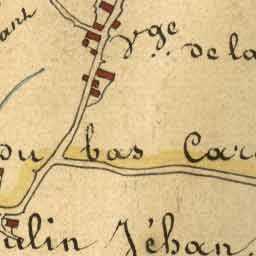 vge. de la
du bas Car
ulin Jéhan